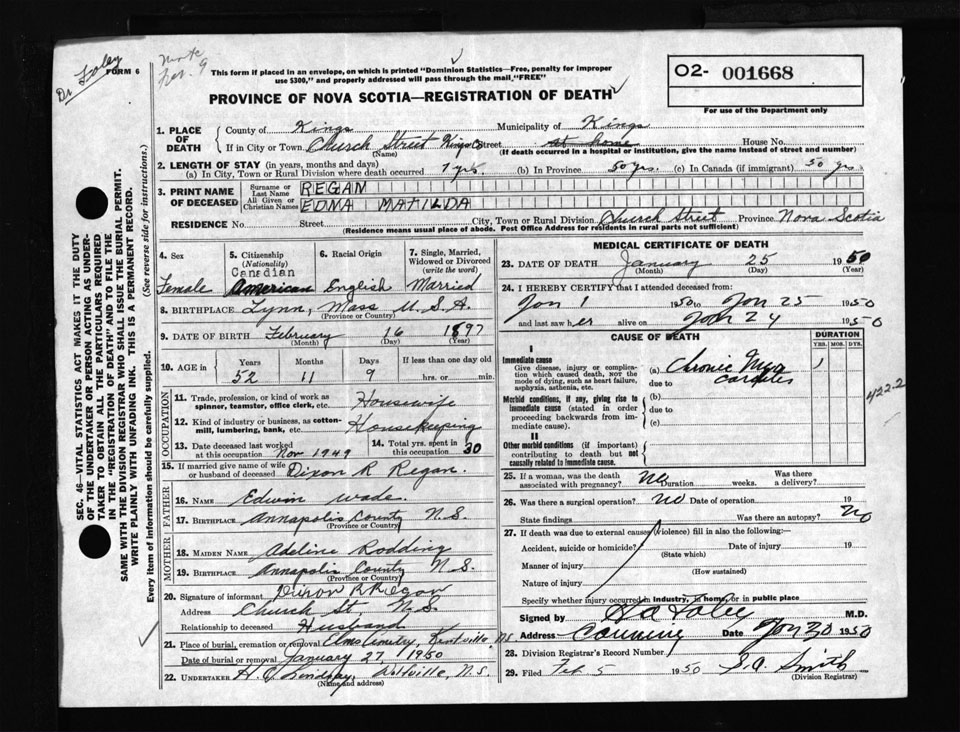 Dr Foley
FORM 6
Note
This form if placed in an envelope, on which is printed "Dominion Statistics—Free, penalty for improper
use $300," and properly addressed will pass through the mail, "FREE"
PROVINCE OF NOVA SCOTIA—REGISTRATION OF DEATH
O2- 001668
For use of the Department only
1. PLACE OF DEATH
County of Kings Municipality of Kings
If in City or Town Church Street Kings Co Street at home House No.
(Name) (If death occurred in a hospital or institution, give the name instead of street and number)
2. LENGTH OF STAY (in years, months and days)
(a) In City, Town or Rural Division where death occurred 7 yrs. (b) In Province 50 yrs. (c) In Canada (if immigrant) 50 yrs
3. PRINT NAME OF DECEASED
Surname or Last Name REGAN
All Given or Christian Names EDNA MATILDA
RESIDENCE No. Street City, Town or Rural Division Church Street Province Nova Scotia
(Residence means usual place of abode. Post Office Address for residents in rural parts not sufficient)
4. Sex Female
5. Citizenship (Nationality) Canadian American
6. Racial Origin English
7. Single, Married, Widowed or Divorced (write the word) Married
8. BIRTHPLACE Lynn, Mass U.S.A.
(Province or Country)
9. DATE OF BIRTH February 16 1897
(Month) (Day) (Year)
10. AGE in Years Months Days If less than one day old
52 11 9 hrs. or min.
OCCUPATION
11. Trade, profession, or kind of work as
spinner, teamster, office clerk, etc. Housewife
12. Kind of industry or business, as cotton-
mill, lumbering, bank, etc. Housekeeping
13. Date deceased last worked at this occupation Nov 1949
14. Total yrs. spent in this occupation 30
15. If married give name of wife
or husband of deceased Dixon R Regan.
FATHER
16. NAME Edwin Wade.
17. BIRTHPLACE Annapolis County N.S.
(Province or Country)
MOTHER
18. MAIDEN NAME Adeline Rodding
19. BIRTHPLACE Annapolis County N.S.
(Province or Country)
20. Signature of informant Dixon R Regan
Address Church St. N.S.
Relationship to deceased Husband
21. Place of burial, cremation or removal Elms Cemetery, Kentville, NS
Date of burial or removal January 27 1950
22. UNDERTAKER H. Lindsay, Wolfville, N.S.
(Name and address)
MEDICAL CERTIFICATE OF DEATH
23. DATE OF DEATH January 25 1950
(Month) (Day) (Year)
24. I HEREBY CERTIFY that I attended deceased from:
Jan 1 1950 to Jan 25 1950
and last saw her alive on Jan 24 1950
CAUSE OF DEATH DURATION
YRS. MOS. DYS.
I
Immediate cause
Give disease, injury or complica-
tion which caused death, NOT the
mode of dying, such as heart failure,
asphyxia, asthenia, etc.
(a) Chronic Myo 1
due to carditis
422-2
Morbid conditions, if any, giving rise to
immediate cause (stated in order
proceeding backwards from im-
mediate cause).
(b)
due to
(c)
II
Other morbid conditions (if important)
contributing to death but not
causally related to immediate cause.
25. If a woman, was the death
associated with pregnancy? No Duration weeks. Was there a delivery?
26. Was there a surgical operation? No Date of operation 19
State findings Was there an autopsy? No
27. If death was due to external causes (violence) fill in also the following:
Accident, suicide or homicide? Date of injury 19
(State which)
Manner of injury
(How sustained)
Nature of injury
Specify whether injury occurred in industry, in home, or in public place
Signed by Foley M.D.
Address Canning Date Jan 30 1950
28. Division Registrar's Record Number
29. Filed Feb 5 1950 Smith
(Division Registrar)
SEC. 46—VITAL STATISTICS ACT MAKES IT THE DUTY
OF THE UNDERTAKER OR PERSON ACTING AS UNDER-
TAKER TO OBTAIN ALL THE PARTICULARS REQUIRED
IN THE "REGISTRATION OF DEATH" AND TO FILE THE
SAME WITH THE DIVISION REGISTRAR WHO SHALL ISSUE THE BURIAL PERMIT.
WRITE PLAINLY WITH UNFADING INK. THIS IS A PERMANENT RECORD.
Every item of information should be carefully supplied. (See reverse side for instructions.)